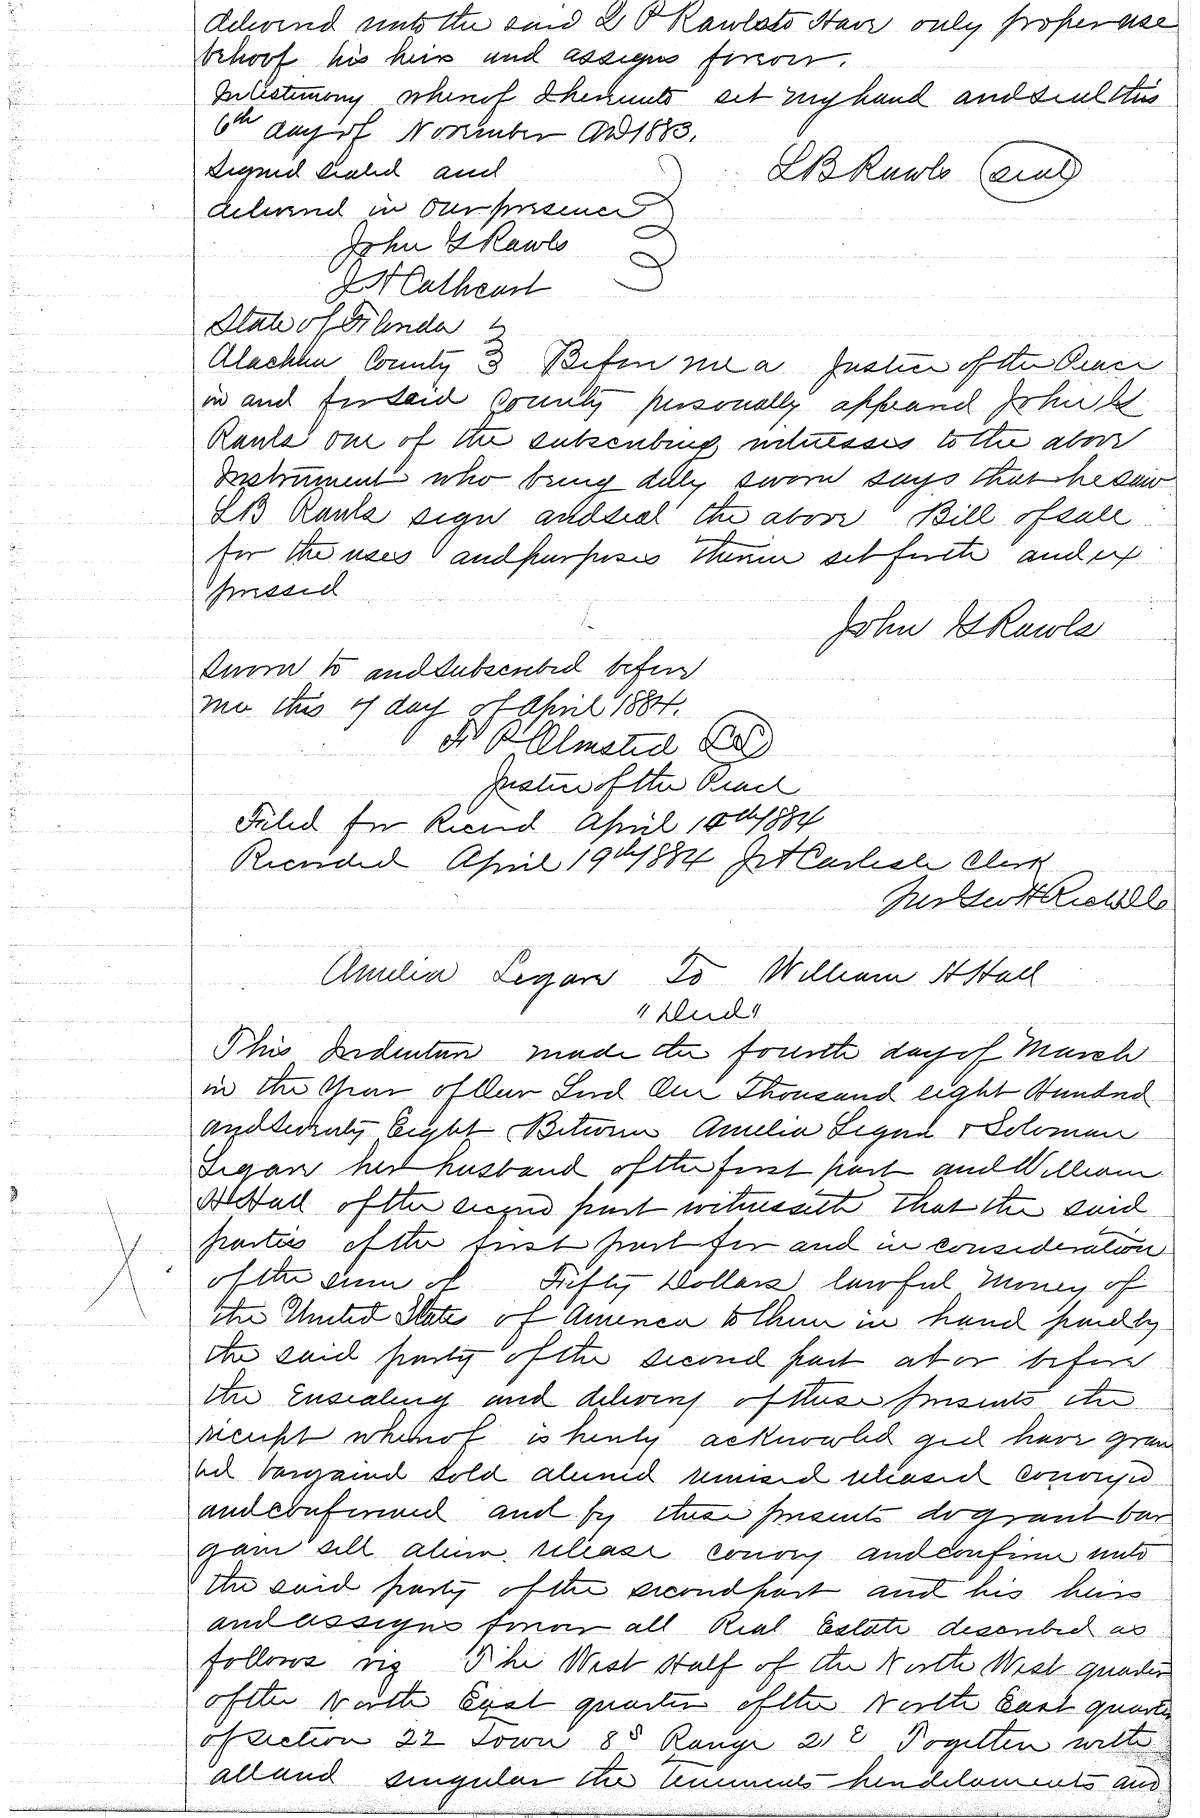 delivered unto the said L P Rawls to Have only proper use
behoof his heirs and assigns forever.
In testimony whereof I hereunto set my hand and seal this
6th day of November AD 1883.
Signed sealed and
LB Rawls (seal)
delivered in our presence
John G Rawls
J H Cathcart
State of Florida
Alachua County Before me a Justice of the Peace
in and for said County personally appeared John G
Rawls one of the subscribing witnesses to the above
Instrument who being duly sworn says that he saw
LB Rawls sign and seal the above Bill of sale
for the uses and purposes therein set forth and ex
pressed
John G Rawls
Sworn to and subscribed before
me this 7 day of April 1884.
F P Olmsted (LS)
Justice of the Peace
Filed for Record April 10th 1884
Recorded April 19th 1884 J A Carlisle Clerk
per Geo H
Amelia Legare To William H Hall
"Deed"
This Indenture made the fourth day of March
in the Year of Our Lord One Thousand eight Hundred
and Seventy Eight Between Amelia Legare & Soloman
Legare her husband of the first part and William
H Hall of the second part witnesseth that the said
parties of the first part for and in consideration
of the sum of Fifty Dollars lawful Money of
the United States of America to them in hand paid by
the said party of the second part at or before
the Ensealing and delivery of these presents the
receipt whereof is hereby acknowled ged have gran
ted bargaind sold aliened remised released conveyed
and confirmed and by these presents do grant bar
gain sell alien release convey and confirm unto
the said party of the second part and his heirs
and assigns forever all Real Estate described as
follows viz The West Half of the North West quarter
of the North East quarter of the North East quarter
of section 22 Town 8 S Range 21 E Together with
all and singular the tenements hendelaments and